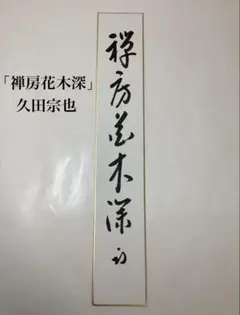 「禅房花木深」
久田宗也
禅房花木深